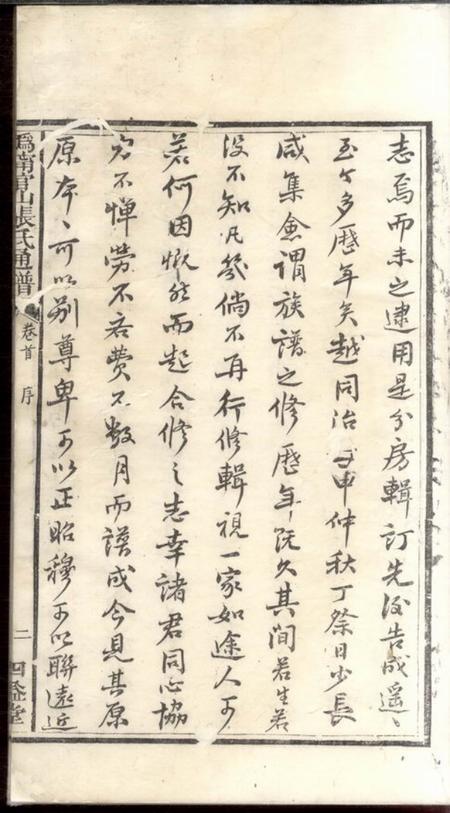 志焉而未之逮用是分房輯訂先後告成遥〻
至今多歷年矣越同治壬申仲秋丁祭日少長
咸集僉謂族譜之修歷年既久其間若生若
没不知凡幾倘不再行修輯視一家如途人可
若何因慨然而起合修之志幸諸君同心協
力不憚勞不吝費不数月而譜成今見其原
原本〻可以别尊卑可以正昭穆可以聯遠近
爲甯山張氏通譜
卷首 序
二